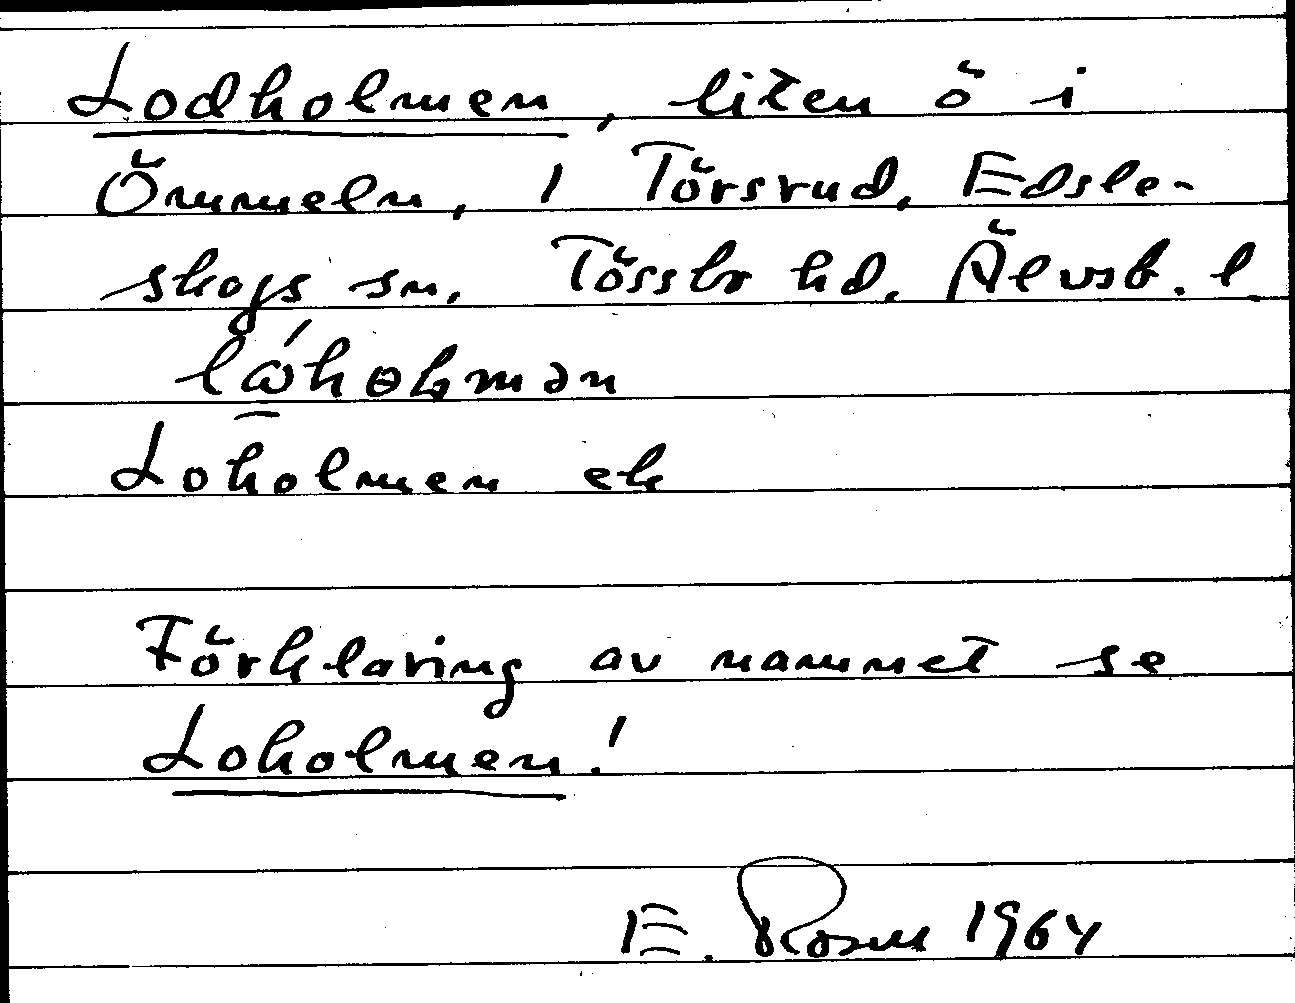 Lodholmen, liten ö i
Ömmeln, 1 Törsrud, Edsle-
skogs sn, Tössbo hd, Älvsb. l
Loholmen ek
Förklaring av namnet se
Loholmen!
E. Rosell 1964